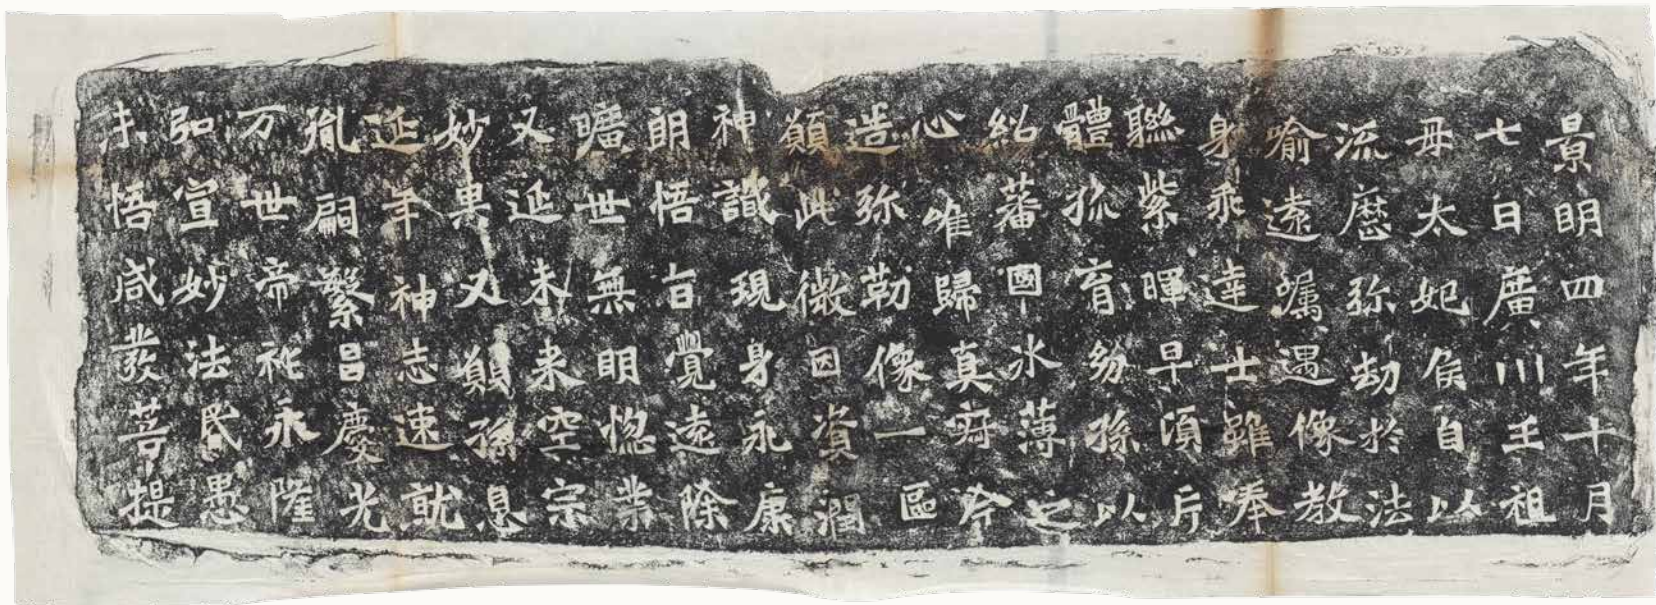 景明四年十月
七日廣川王祖
母太妃侯自以
流歷弥劫於法
喻遠嘱遇像教
身乘達士雖奉
聯紫暉早頃片
體孤育幼孫以
紹蕃國冰薄之
心唯歸真寂今
造弥勒像一區
願此微因資潤
神識現身永康
朗悟旨覺遠除
曠世無明惚業
又延未来空宗
妙果又願孫息
延年神志速就
胤嗣繁昌慶光
万世帝祚永隆
弘宣妙法昏愚
未悟咸發菩提